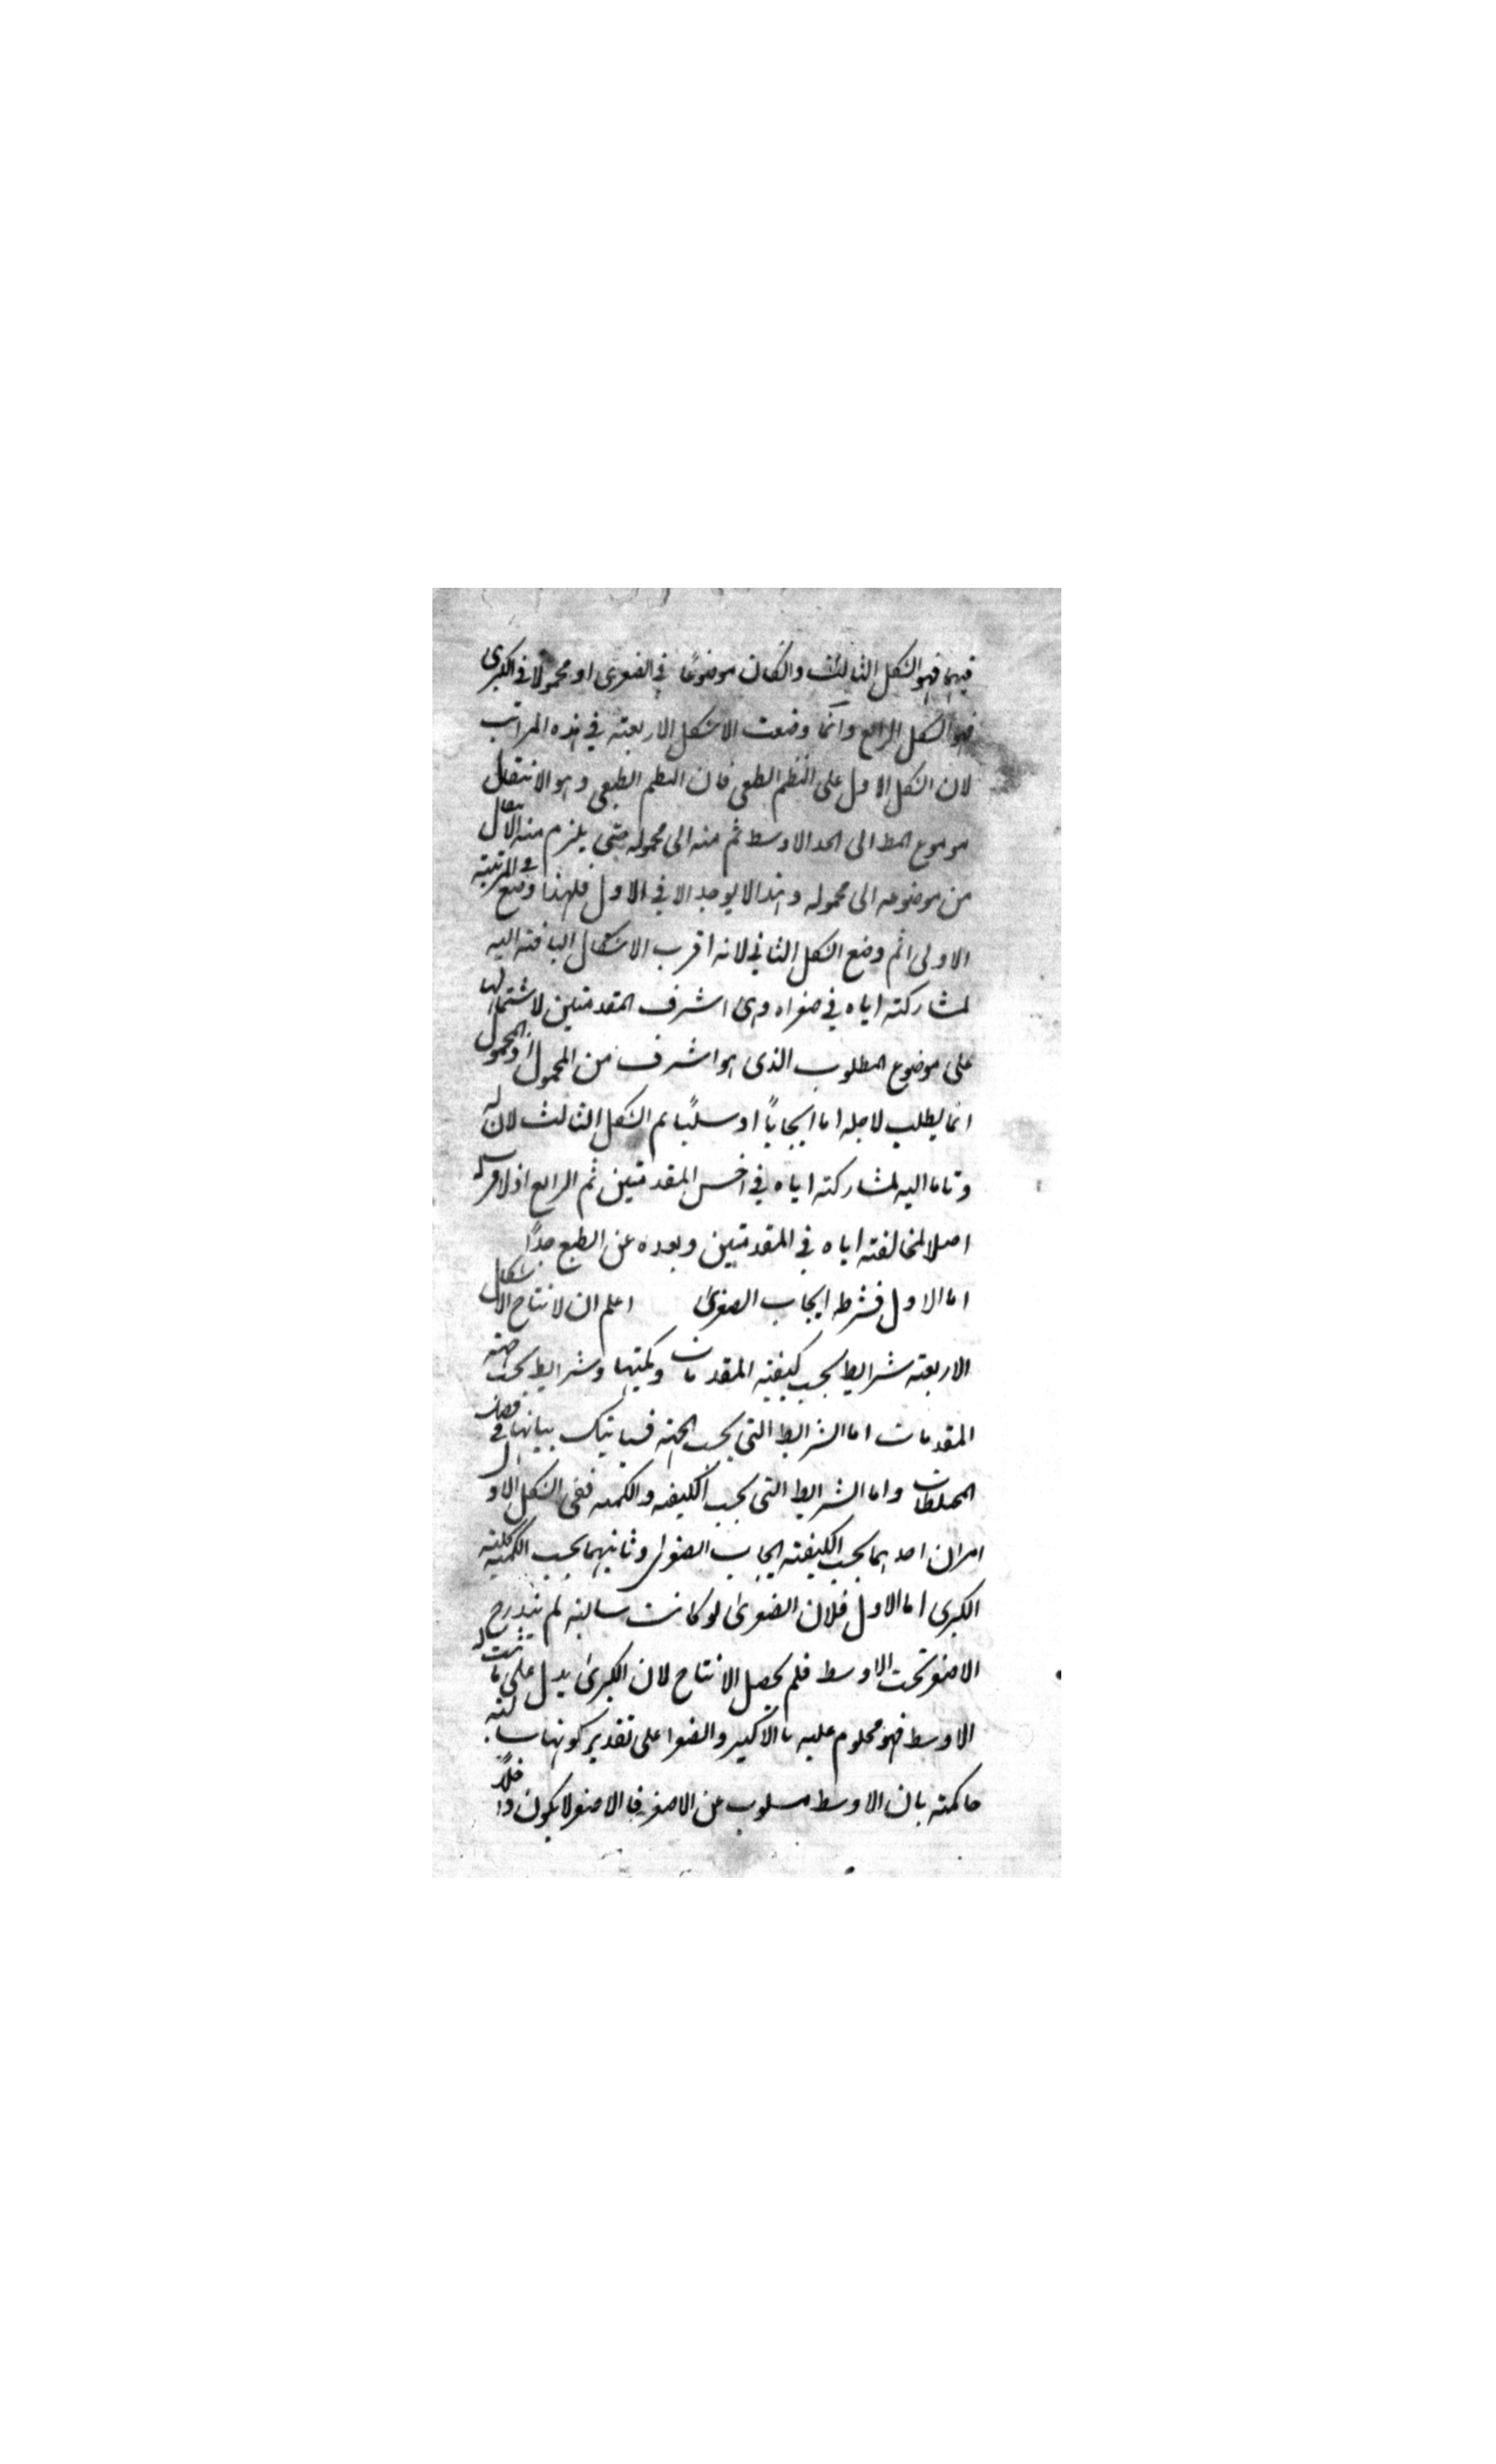 فيهما فهو الشكل الثالث وان كان موضوعًا في الصغرى او محمولا في الكبرى
فهو الشكل الرابع وانما وضعت الاشكل الاربعته في هذه المراتب
لان الشكل الاول على النظم الطبعى فان النظم الطبعى وهو الانتقال
موضوع المط الى الحد الاوسط ثم منه الى محموله حتى يلزم منه الانتقال
من موضوعه الى محموله وهذا لا يوجد الا في الاول فلهذا وضع في المرتبته
الاولى ثم وضع الشكل الثاني لانه اقرب الاشكال الباقته اليه
لمشاركته اياه في صغراه وهى اشرف المقدمتين لاشتمالها
على موضوع المطلوب الذى هو اشرف من المحمول اذ المحمول
انما يطلب لاجله اما ايجابًا او سلبًا ثم الشكل الثالث لان له
وتاما اليه لمشاركته اياه في اخس المقدمتين ثم الرابع اذ لا قرب له
اصلا لمخالفته اياه في المقدمتين وبعده عن الطبع جدًا
اما الاول فشرطه ايجاب الصغرى اعلم ان لانتاج الاشكال
الاربعته شرايط بحسب كيفيته المقدمات وكميتها وشرايط بحسب جهته
المقدمات اما الشرايط التى بحسب الجهته فسياتيك بيانها في فصل
المختلطات واما الشرايط التى بحسب الكيفيه والكميه ففى الشكل الاول
امران احدهما بحسب الكيفيته ايجاب الصغرى وثانيهما بحسب الكميته كليته
الكبرى اما الاول فلان الصغرى لو كانت سالبته لم يندرج
الاصغر تحت الاوسط فلم يحصل الانتاج لان الكبرى يدل على ما ثبت له
الاوسط فهو محلوم عليه بالاكبر والصغرا على تقدير كونها سالبته
حاكمته بان الاوسط مسلوب عن الاصغر فالاصغر لا يكون داخلاً